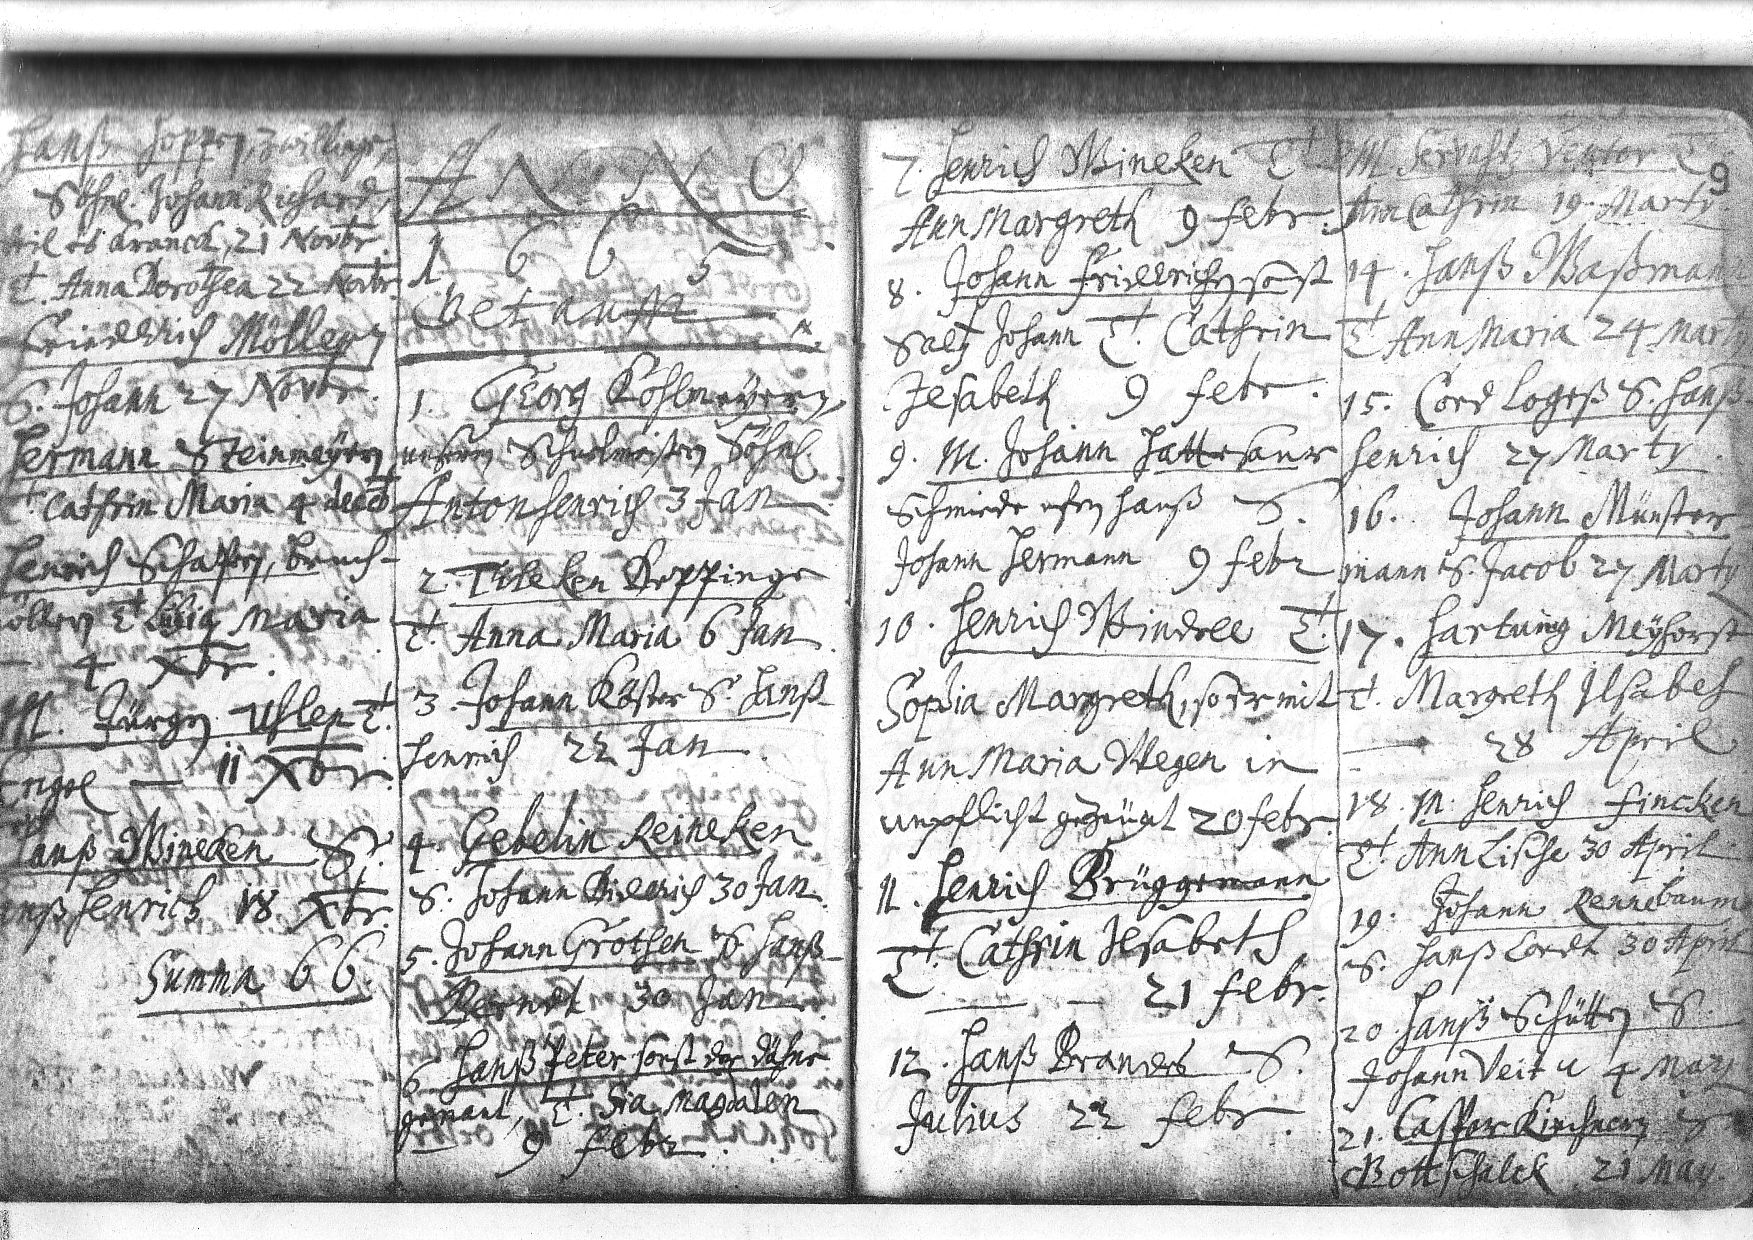 Hanß Hoppen, zwillinge,
Söhnl. Johann Richard,
21 Novbr.
T. Anna Dorothea 22 Novbr
Friedrich Möllern
S. Johann 27 Novbr.
Hermann Steinmeÿern
T. Cathrin Maria 4 decb
Henrich Schafern, bruch-
möllern T. Maria
— 4 Xbr.
M. Jürgen Uslep T.
Engel — 11 Xbr.
Hanß Wineken S.
Hanß Henrich 18 Xbr.
Summa 66.
ANNO
1665.
Getaufft
1. Georg Kohlmeÿern,
unsern Schulmeistern Söhnl.
Anton Henrich 3 Jan.
2. Tileken Keppinge
T. Anna Maria 6 Jan.
3. Johann Köster S. Hanß
Henrich 22 Jan.
4. Gebelin Reineken
S. Johann Diderich 30 Jan.
5. Johann Grothen S. Hanß
Berndt 30 Jan.
6. Hanß Peter sonst der
genant, T. Magdalen
9 febr.
7. Henrich Wineken T.
Ann Margreth 9 febr.
8. Johann Friedrichen sonst
Saltz Johann T. Cathrin
Ilsabeth 9 febr.
9. M. Johann Hattesaur
Schmiede Hanß S.
Johann Hermann 9 febr
10. Henrich Windell T.
Sophia Margreth, so er mit
Ann Maria Wegen in
unpflicht gezeuget 20 febr.
11. Henrich Brüggemann
T. Cathrin Ilsabeth
— — 21 febr.
12. Hanß Brandes S.
Julius 22 febr.
9
M. Servasth Venter T.
Ann Cathrin 19 Marty.
14. Hanß Waßmann
T. Ann Maria 24 Marty
15. Cord Logeß S. Hanß
Henrich 27 Marty.
16. Johann Münster
mann S. Jacob 27 Marty
17. Hartung Meÿhorst
T. Margreth Ilsabeh
— 28 April.
18. M. Henrich Fincken
T. Ann Lische 30 April
19. Johann Rennebaum
S. Hanß Cordt 30 April
20. Hanß Schütten S.
Johann Veit 4 May
21. Casper Kirchnern S
Gottschalck 21 May.